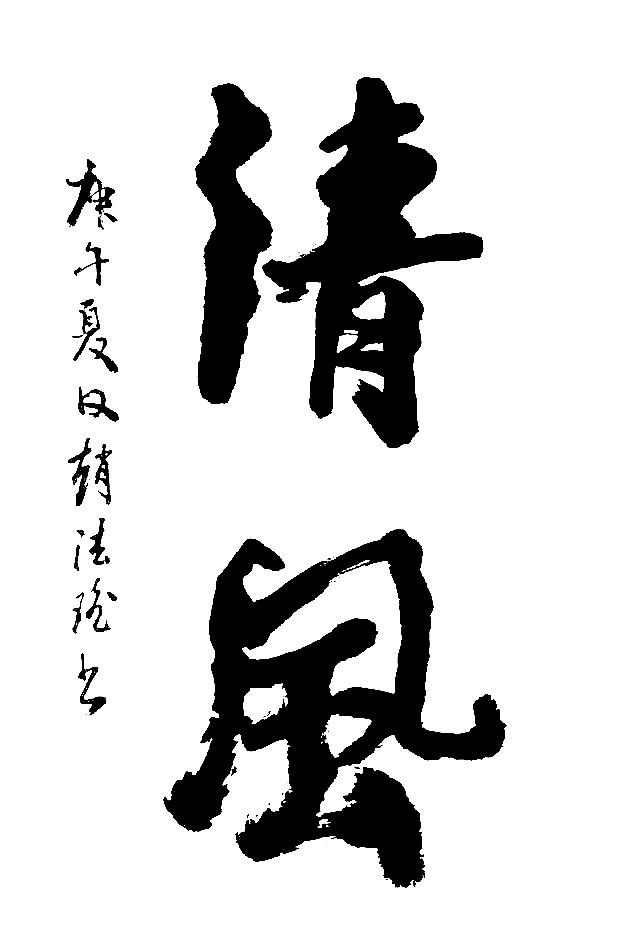 清風
庚午夏日趙法瑤書